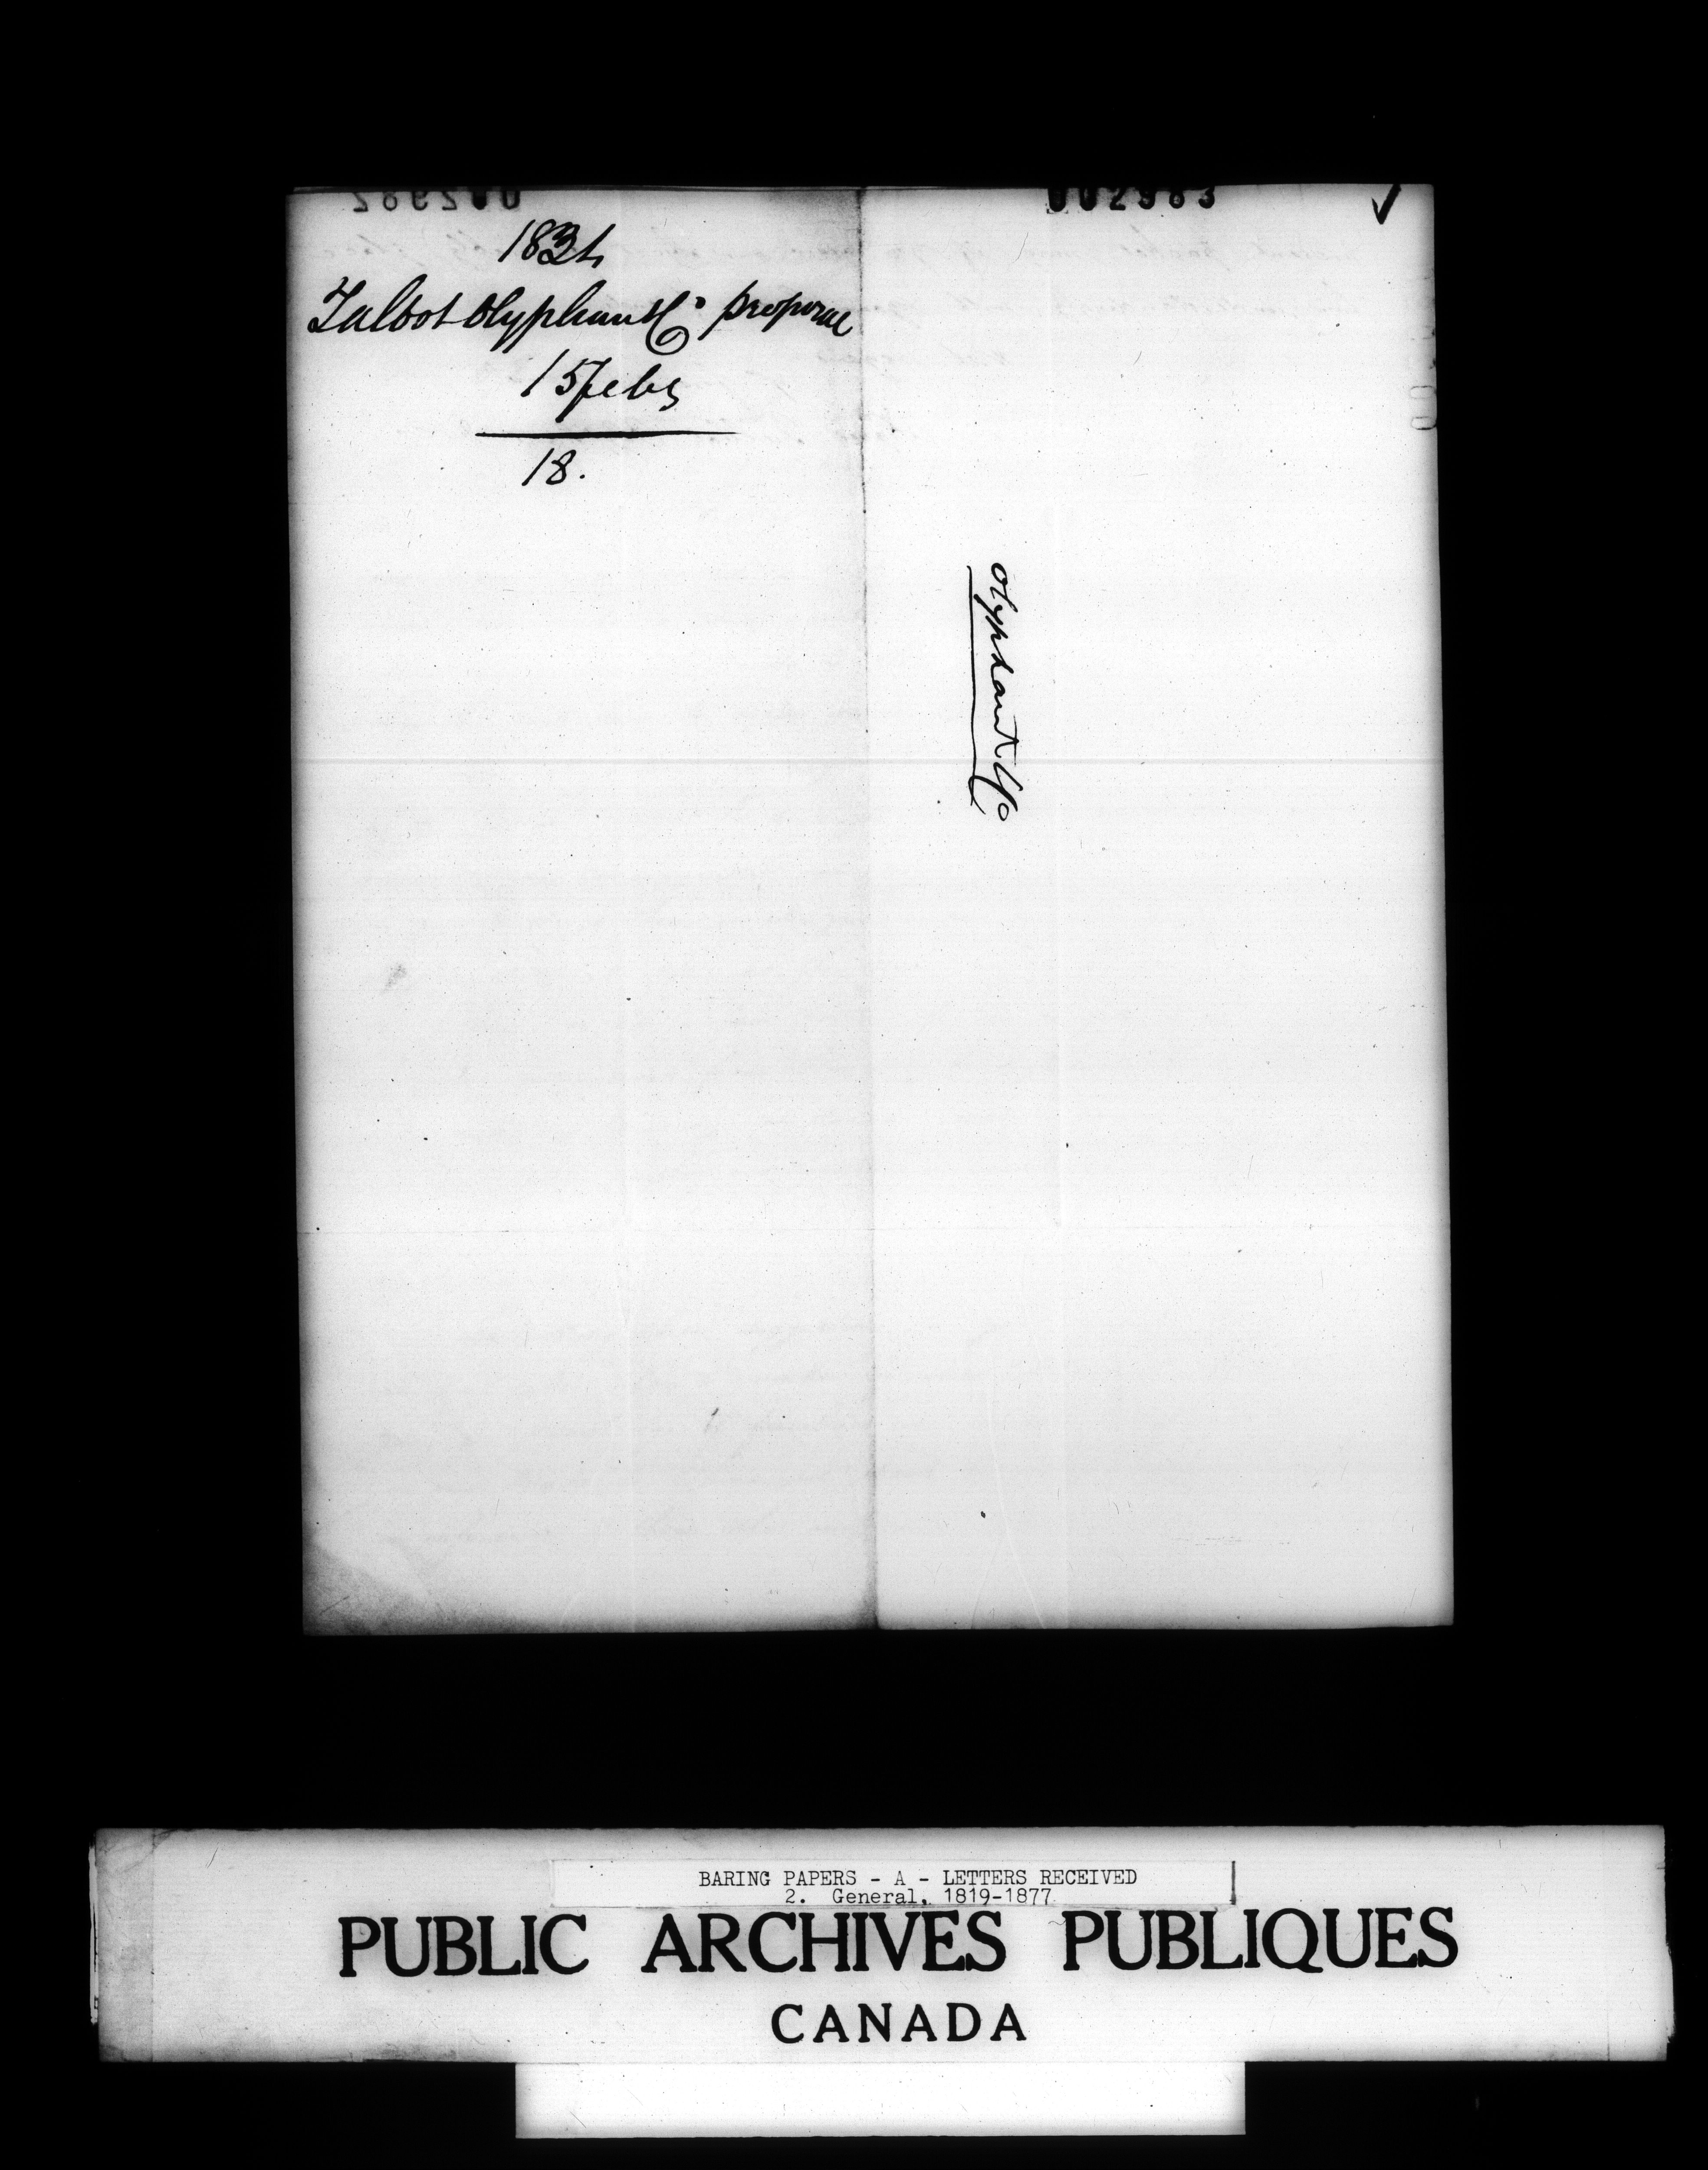 002983
1834
Talbot Olyphant & Co proposal
15 Feby
18.
Olyphant & Co
BARING PAPERS - A - LETTERS RECEIVED
2. General, 1819-1877
PUBLIC ARCHIVES PUBLIQUES
CANADA